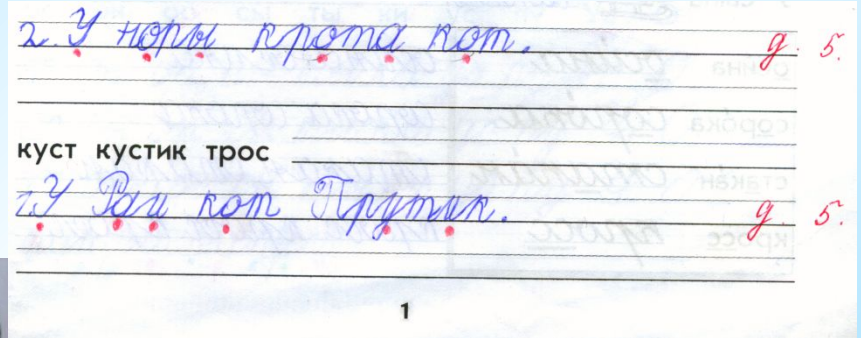 2. У норы крота кот. д. 5.
куст кустик трос
1. У Раи кот Прутик. д 5.
1